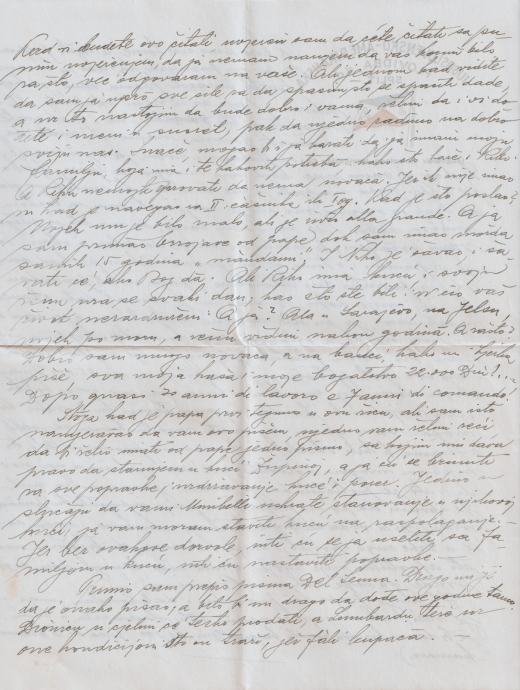 Kad vi budete ovo čitati uvjeren sam da ćete čitati sa pu
nim uvjerenjem, da ja nemam namjere da vas korim bilo
za što, već odgovaram na vaše. Ali jednom kad vidite
da sam ja uprò sve sile za da spasim što se spasiti dade,
a uz to nastojim da bude dobro i vama, želim da i vi do
đete i meni u susret, pak da ujedno radimo na dobro
sviju nas. Inače, mogao bi i ja barati da ja imam moju
familju, koja nima te kakovih potreba kako što kaše i Riko.
A Riku nemojte vjerovati da nema novaca. Jer ih nije imao
ni kad je navegao na II časnika do 1og. Kad je što poslao?
Uvijek mu je bilo malo, ali je živio alla grande. A ja
sam primao brzojave od pape, dok sam imao možda
samih 15 godina "mandami"! I Niko je davao i da
vati će, ako Bog da. Ali Riko ima kuću, i svoju
ženu uza se svaki dan, kao što ste bili i vi cio vaš
život nerazdruženi. A ja? Ada u Sarajevo, na Jelsu,
uvijek po moru, a ženu vidim nakon godinā. A zašto?
Dobio sam mnogo novaca, a na banci, kako mi Ljerka
piše, sva moja kasa i moje bogatstvo 20.000 Din!...
Dopo quasi 20 anni di lavoro e 7 anni di comando!
Stoga kad je papa prvi legnuo u ovu roca, ali sam isto
namjeravao da vam ovo pišem, ujedno vam želim reći
da bi želio imati od pape jedno pismo, sa kojim mi dava
pravo da stanujem u kući Supenoj, a ja ću se brinuti
za sve popravke, uzdržavanje kuće i porez. Jedino u
slučaju da vama Mirabelli uskrate stanovanje u njihovoj
kući, ja vam moram staviti kuću na raspolaganje.-
Jer bez ovakove dozvole, niti ću se ja useliti sa fa
miljom u kuću, niti ću nastaviti popravke.—
Primio sam prepis pisma Del Senna. Drago mi je
da je onako pisao, a bilo bi mi drago da dođe ove godine tamo.
Dionicu u cjelini će teško prodati, a Lombardu Tere uz
one kondicijom što on traži, jer fali kupaca.